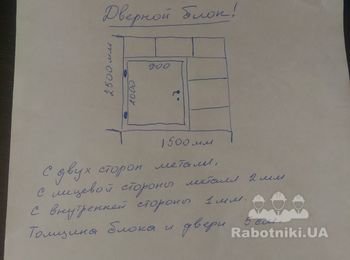 Дверной блок!
2500мм
900
1000
1500мм
С двух сторон металл.
С лицевой стороны металл 2мм
С внутренней стороны 1мм.
Толщина блока и двери 5см.
Rabotniki.UA